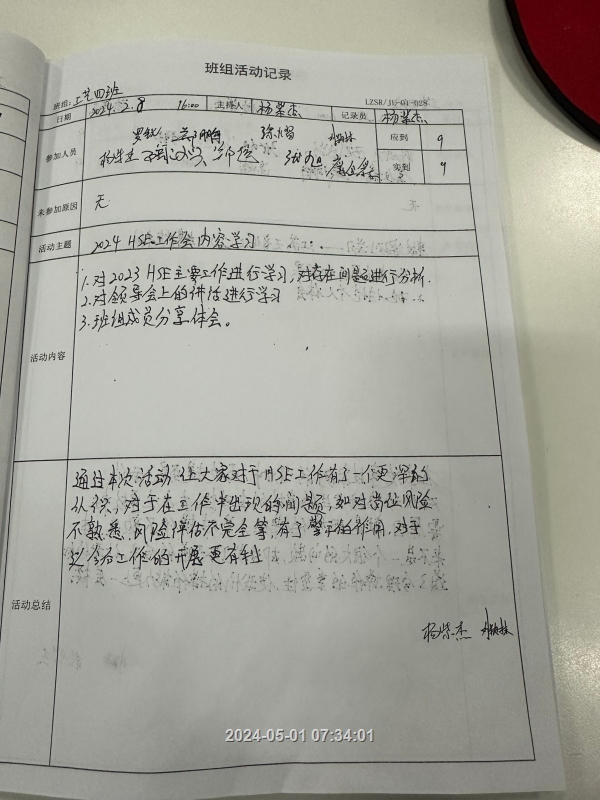 班组活动记录
班组: 上艺四班 LZSR/JL-01-028
日期 2024.2.8 16:00 主持人 杨紫杰 记录员 杨紫杰
参加人员 应到 9
实到 9
未参加原因 无
活动主题 2024 HSE工作会内容学习
活动内容
1.对2023 HSE主要工作进行学习,对存在问题进行分析.
2.对领导会上的讲话进行学习
3.班组成员分享体会。
活动总结
通过本次活动让大家对于HSE工作有了一个更深的
认识,对于在工作中出现的问题,如对岗位风险
不熟悉,风险评估不完全等,有了警示的作用,对于
今后工作的开展更有利
杨紫杰
2024-05-01 07:34:01